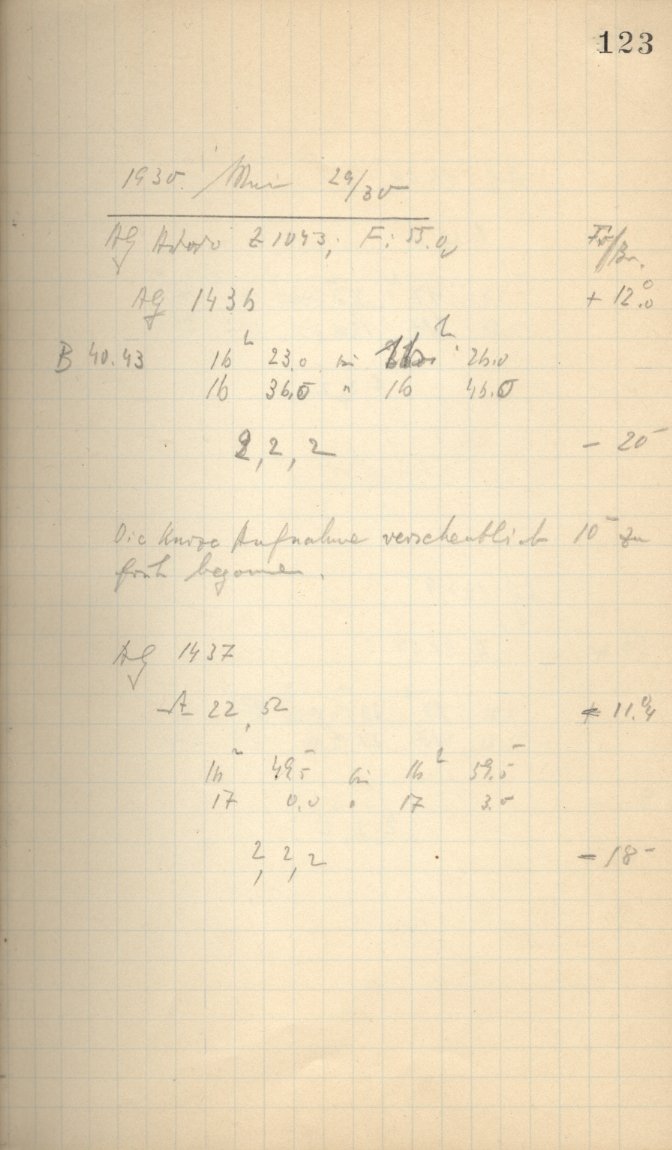 123
1930 Mai 29/30
AG Z 1043; F: 55.0
AG 1436 + 12.0
B 40.43 16h 23.0 bis h 26.0
16 36.5 " 16 46.5
2, 2, 2 - 20
Die kurze Aufnahme versehentlich 10 zu
früh begonnen.
AG 1437
A 22, 52 + 11.4
16h 49.5 bis 16h 59.5
17 0.0 " 17 3.0
2, 2, 2 - 18